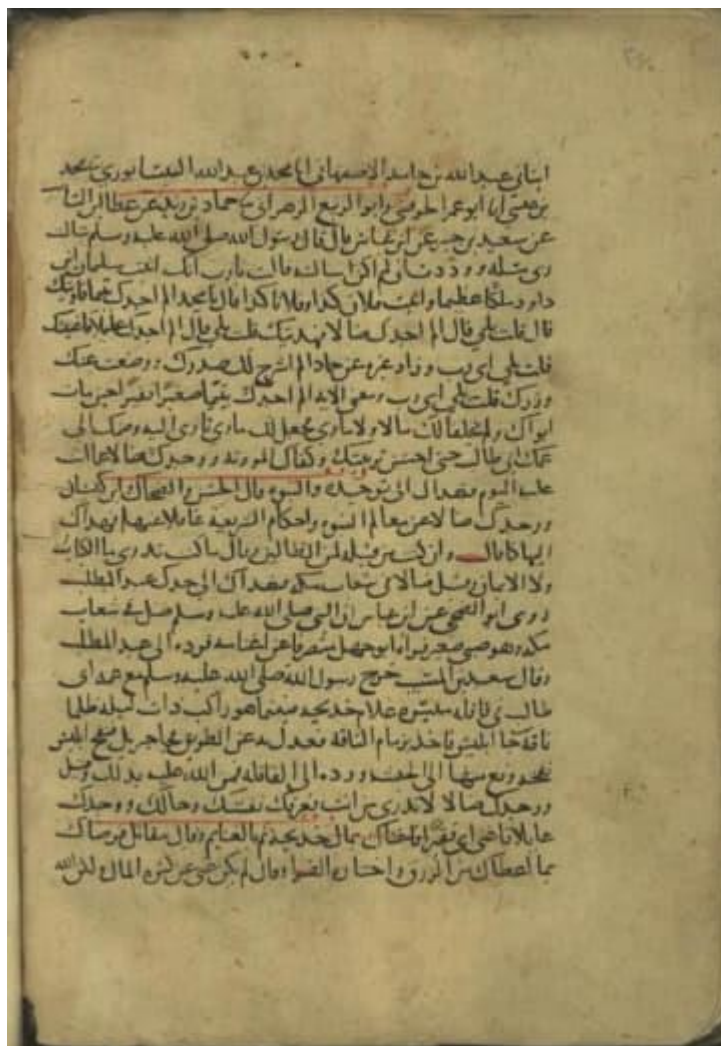 انبانى عبد الله بن حامد الاصفهانى انا محمد بن عبد الله النيسابورى نا محمد
بن عيسى انا ابو عمر الحوضى وابو الربيع الزهرانى عن حماد بن زيد عن عطا بن السا
عن سعيد بن جبير عن ابن عباس قال قال رسول الله صلى الله عليه وسلم سالت
ربى مسله ووددت انى لم اكن اسالته قلت يا رب انك اتيت سليمان ابن
داود ملكا عظيما واتيت فلان كذا وفلانا كذا قال يا محمد الم اجدك يتيما فاويتك
قال قلت بلى قال الم اجدك ضالا فهديتك قلت بلى قال الم اجدك عايلا فاغنيتك
قلت بلى اى رب وزاد غيره عن حماد الم اشرح لك صدرك ووضعت عنك
وزرك قلت بلى اى رب ومعنى الايه الم اجدك يتيما صغيرا فقيرا حين مات
ابواك ولم يخلفا لك مالا ولا ماوى فجعل لك ماوى تاوى اليه وضمك الى
عمك ابى طالب حتى احسن تربيتك وكفاك المؤونه ووجدك ضالا عما انت
عليه اليوم فهداك الى توحيده والنبوه قال الحسن والضحاك وابن كيسان
ووجدك ضالا عن معالم النبوه واحكام الشريعه غافلا عنها فهداك
اليها كما قال وان كنت من قبله لمن الغافلين وقال ما كنت تدرى ما الكتاب
ولا الايمان وقيل ضالا فى شعاب مكه فهداك الى جدك عبد المطلب
روى ابو الضحى عن ابن عباس ان النبى صلى الله عليه وسلم ضل فى شعاب
مكه وهو صبى صغير فراه ابو جهل منصرفا عن اغنامه فرده الى عبد المطلب
وقال سعيد بن المسيب خرج رسول الله صلى الله عليه وسلم مع عمه ابى
طالب فى قافله ميسره غلام خديجه فبينما هو راكب ذات ليله ظلما
ناقة جا ابليس فاخذ بزمام الناقه فعدل به عن الطريق فجا جبريل فنفخ ابليس
نفخه وقع منها الى الحبشه ورده الى القافله فمن الله عليه بذلك وقيل
ووجدك ضالا لا تدرى من انت فعرفك نفسك وحالك ووجدك
عايلا فاغنى اى فقيرا فاغناك بمال خديجه ثم بالغنايم وقال مقاتل فرضاك
بما اعطاك من الرزق واختاره الفرا وقال لم يكن غنى عن كثره المال ولكن الله